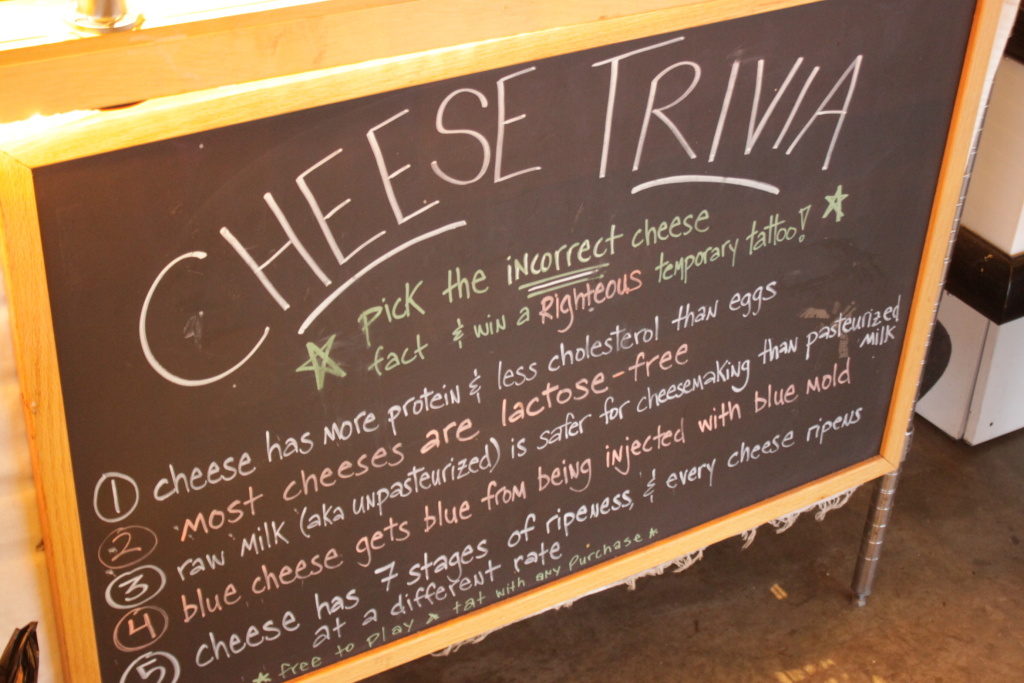 CHEESE TRIVIA
pick the incorrect cheese
fact & win a Righteous temporary tattoo!
① cheese has more protein & less cholesterol than eggs
② most cheeses are lactose-free
③ raw milk (aka unpasteurized) is safer for cheesemaking than pasteurized
milk
④ blue cheese gets blue from being injected with blue mold
⑤ cheese has 7 stages of ripeness, & every cheese ripens
at a different rate
* free to play * tat with any purchase *